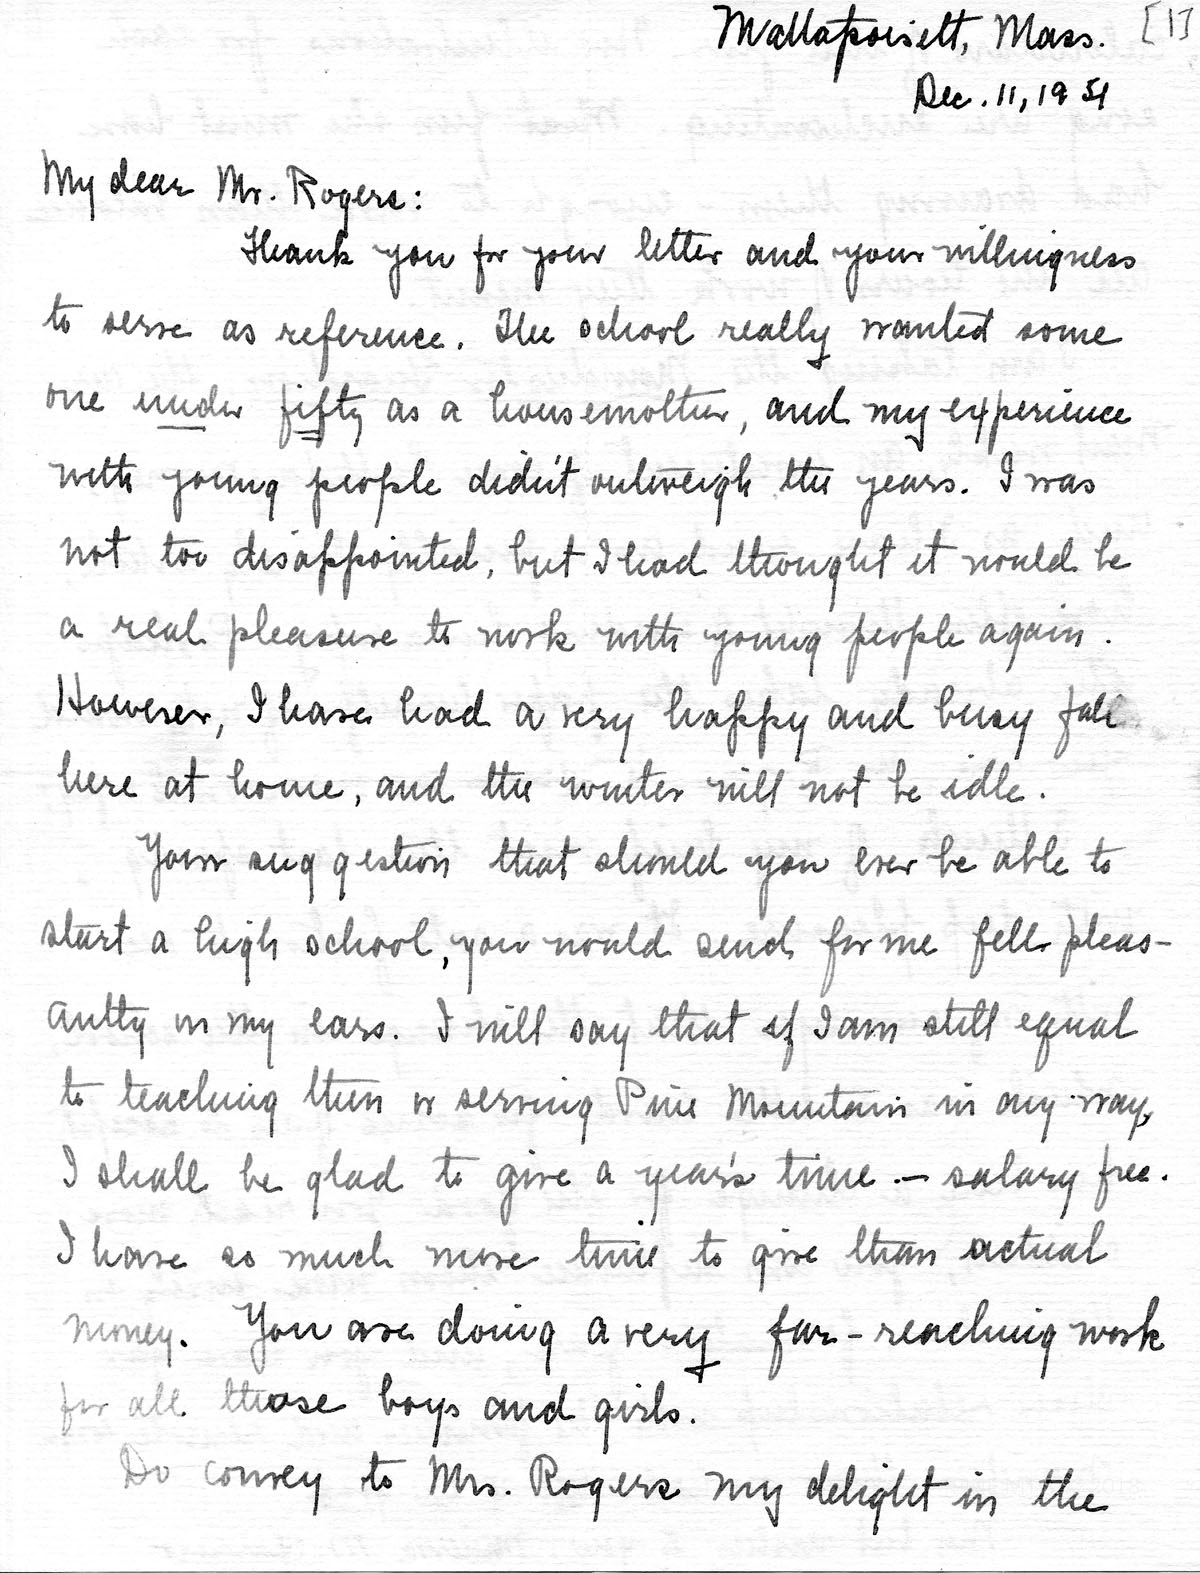 Mattapoisett, Mass. [1]
Dec. 11, 1951
My dear Mr. Rogers:
Thank you for your letter and your willingness
to serve as reference. The school really wanted some
one under fifty as a housemother, and my experience
with young people didn't outweigh the years. I was
not too disappointed, but I had thought it would be
a real pleasure to work with young people again.
However, I have had a very happy and busy fall
here at home, and the winter will not be idle.
Your suggestion that should you ever be able to
start a high school, you would send for me fell pleas-
antly in my ears. I will say that if I am still equal
to teaching then or serving Pine Mountain in any way,
I shall be glad to give a year's time. — salary free.
I have so much more time to give than actual
money. You are doing a very far-reaching work
for all those boys and girls.
Do convey to Mrs. Rogers my delight in the